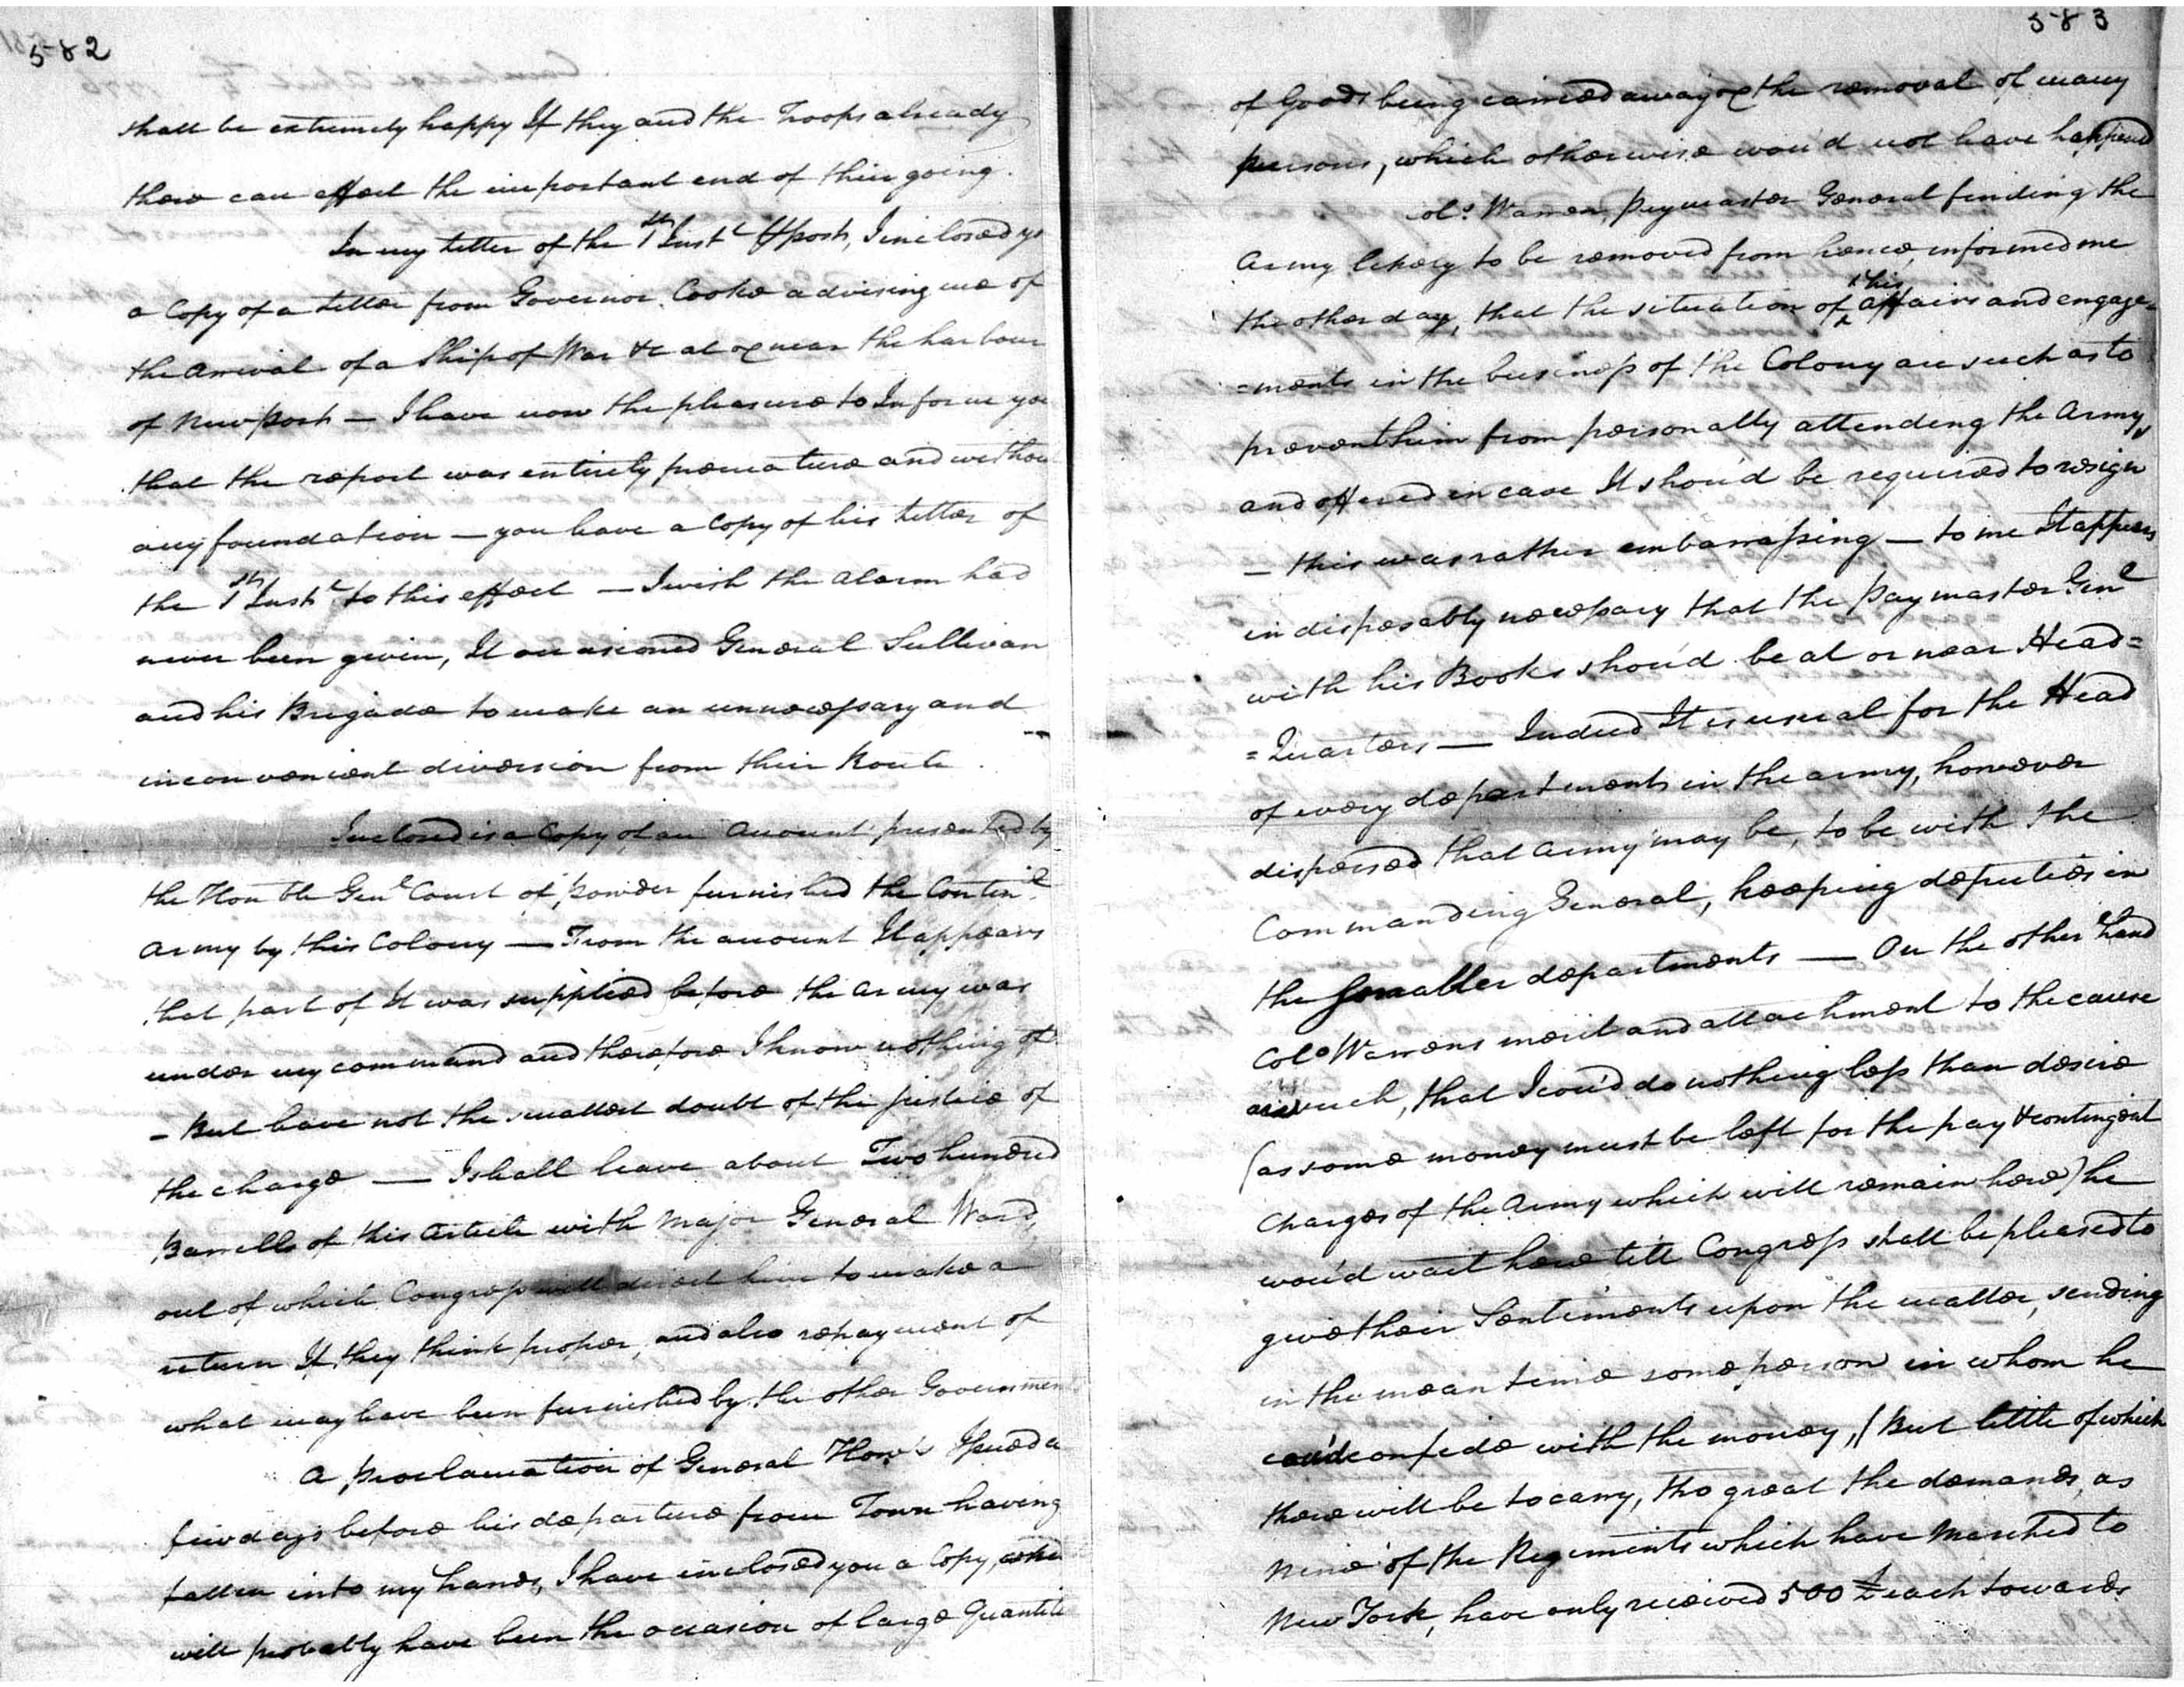 582
shall be extremely happy If they and the Troops already
there can effect the important end of their going.
In my Letter of the 1st Inst pr post, I inclosed yo
a Copy of a Letter from Governor Cooke advising me of
the arrival of a Ship of War &c at or near the harbour
of Newport — I have now the pleasure to Inform you
that the report was entirely premature and withou
any foundation — you have a Copy of his Letter of
the 1st Inst to this effect — I wish the Alarm had
never been given, It occasioned General Sullivan
and his Brigade to make an unnecessary and
inconvenient diversion from their Route.
Inclosed is a Copy of an Account presented by
the Honble Genl Court of powder furnished the Continl
Army by this Colony — From the account It appears
that part of It was supplied before the army was
under my command and therefore I know nothing of
– But have not the smallest doubt of the justice of
the charge — I shall leave about Two hundred
Barrells of this Article with Major General Ward,
out of which Congress will direct him to make a
return If they think proper, and also repayment of
what may have been furnished by the other Governmen
A proclamation of General How's Issued a
few days before his departure from Town having
fallen into my hands, I have inclosed you a Copy, whi
will probably have been the occasion of large Quantiti
583
of Goods being carried away & the removal of many
persons, which otherwise wou'd not have happend
Colo Warren, Paymaster General finding the
Army likely to be removed from hence, informed me
the other day, that the situation of his affairs and engage=
=ments in the business of the Colony are such as to
prevent him from personally attending the Army,
and offered in case It shou'd be required to resign
– this was rather embarrassing — to me It appears
indispesably necessary that the Paymaster Genl
with his Books shou'd be at or near Head=
=Quarters — Indeed It is usual for the Head
of every departments in the army, however
dispersed that Army may be, to be with the
Commanding General, keeping deputies in
the smaller departments — On the other hand
Colo Warrens merit and attachment to the cause
are such, that I cou'd do nothing less than desire
(as some money must be left for the pay & contingent
charges of the Army which will remain here) he
wou'd wait here till Congress shall be pleased to
give their Sentiments upon the matter, sending
in the mean time some person in whom he
cou'd confide with the money, (But little of which
there will be to carry, tho great the demands, as
Nine of the Regiments which have Marched to
New York, have only received 500 £ each towards